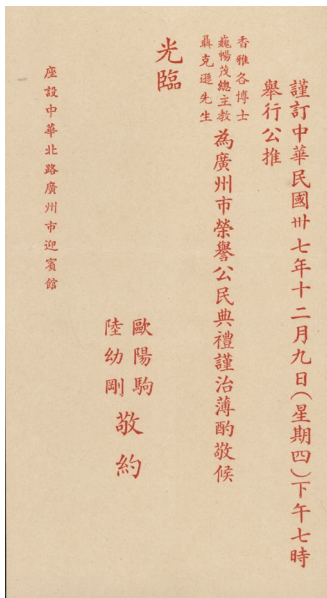 謹訂中華民國卅七年十二月九日(星期四)下午七時
舉行公推
香雅各博士
魏暢茂總主教
聶克遜先生
為廣州市榮譽公民典禮謹治薄酌敬候
光臨
歐陽駒
陸幼剛
敬約
座設中華北路廣州市迎賓館